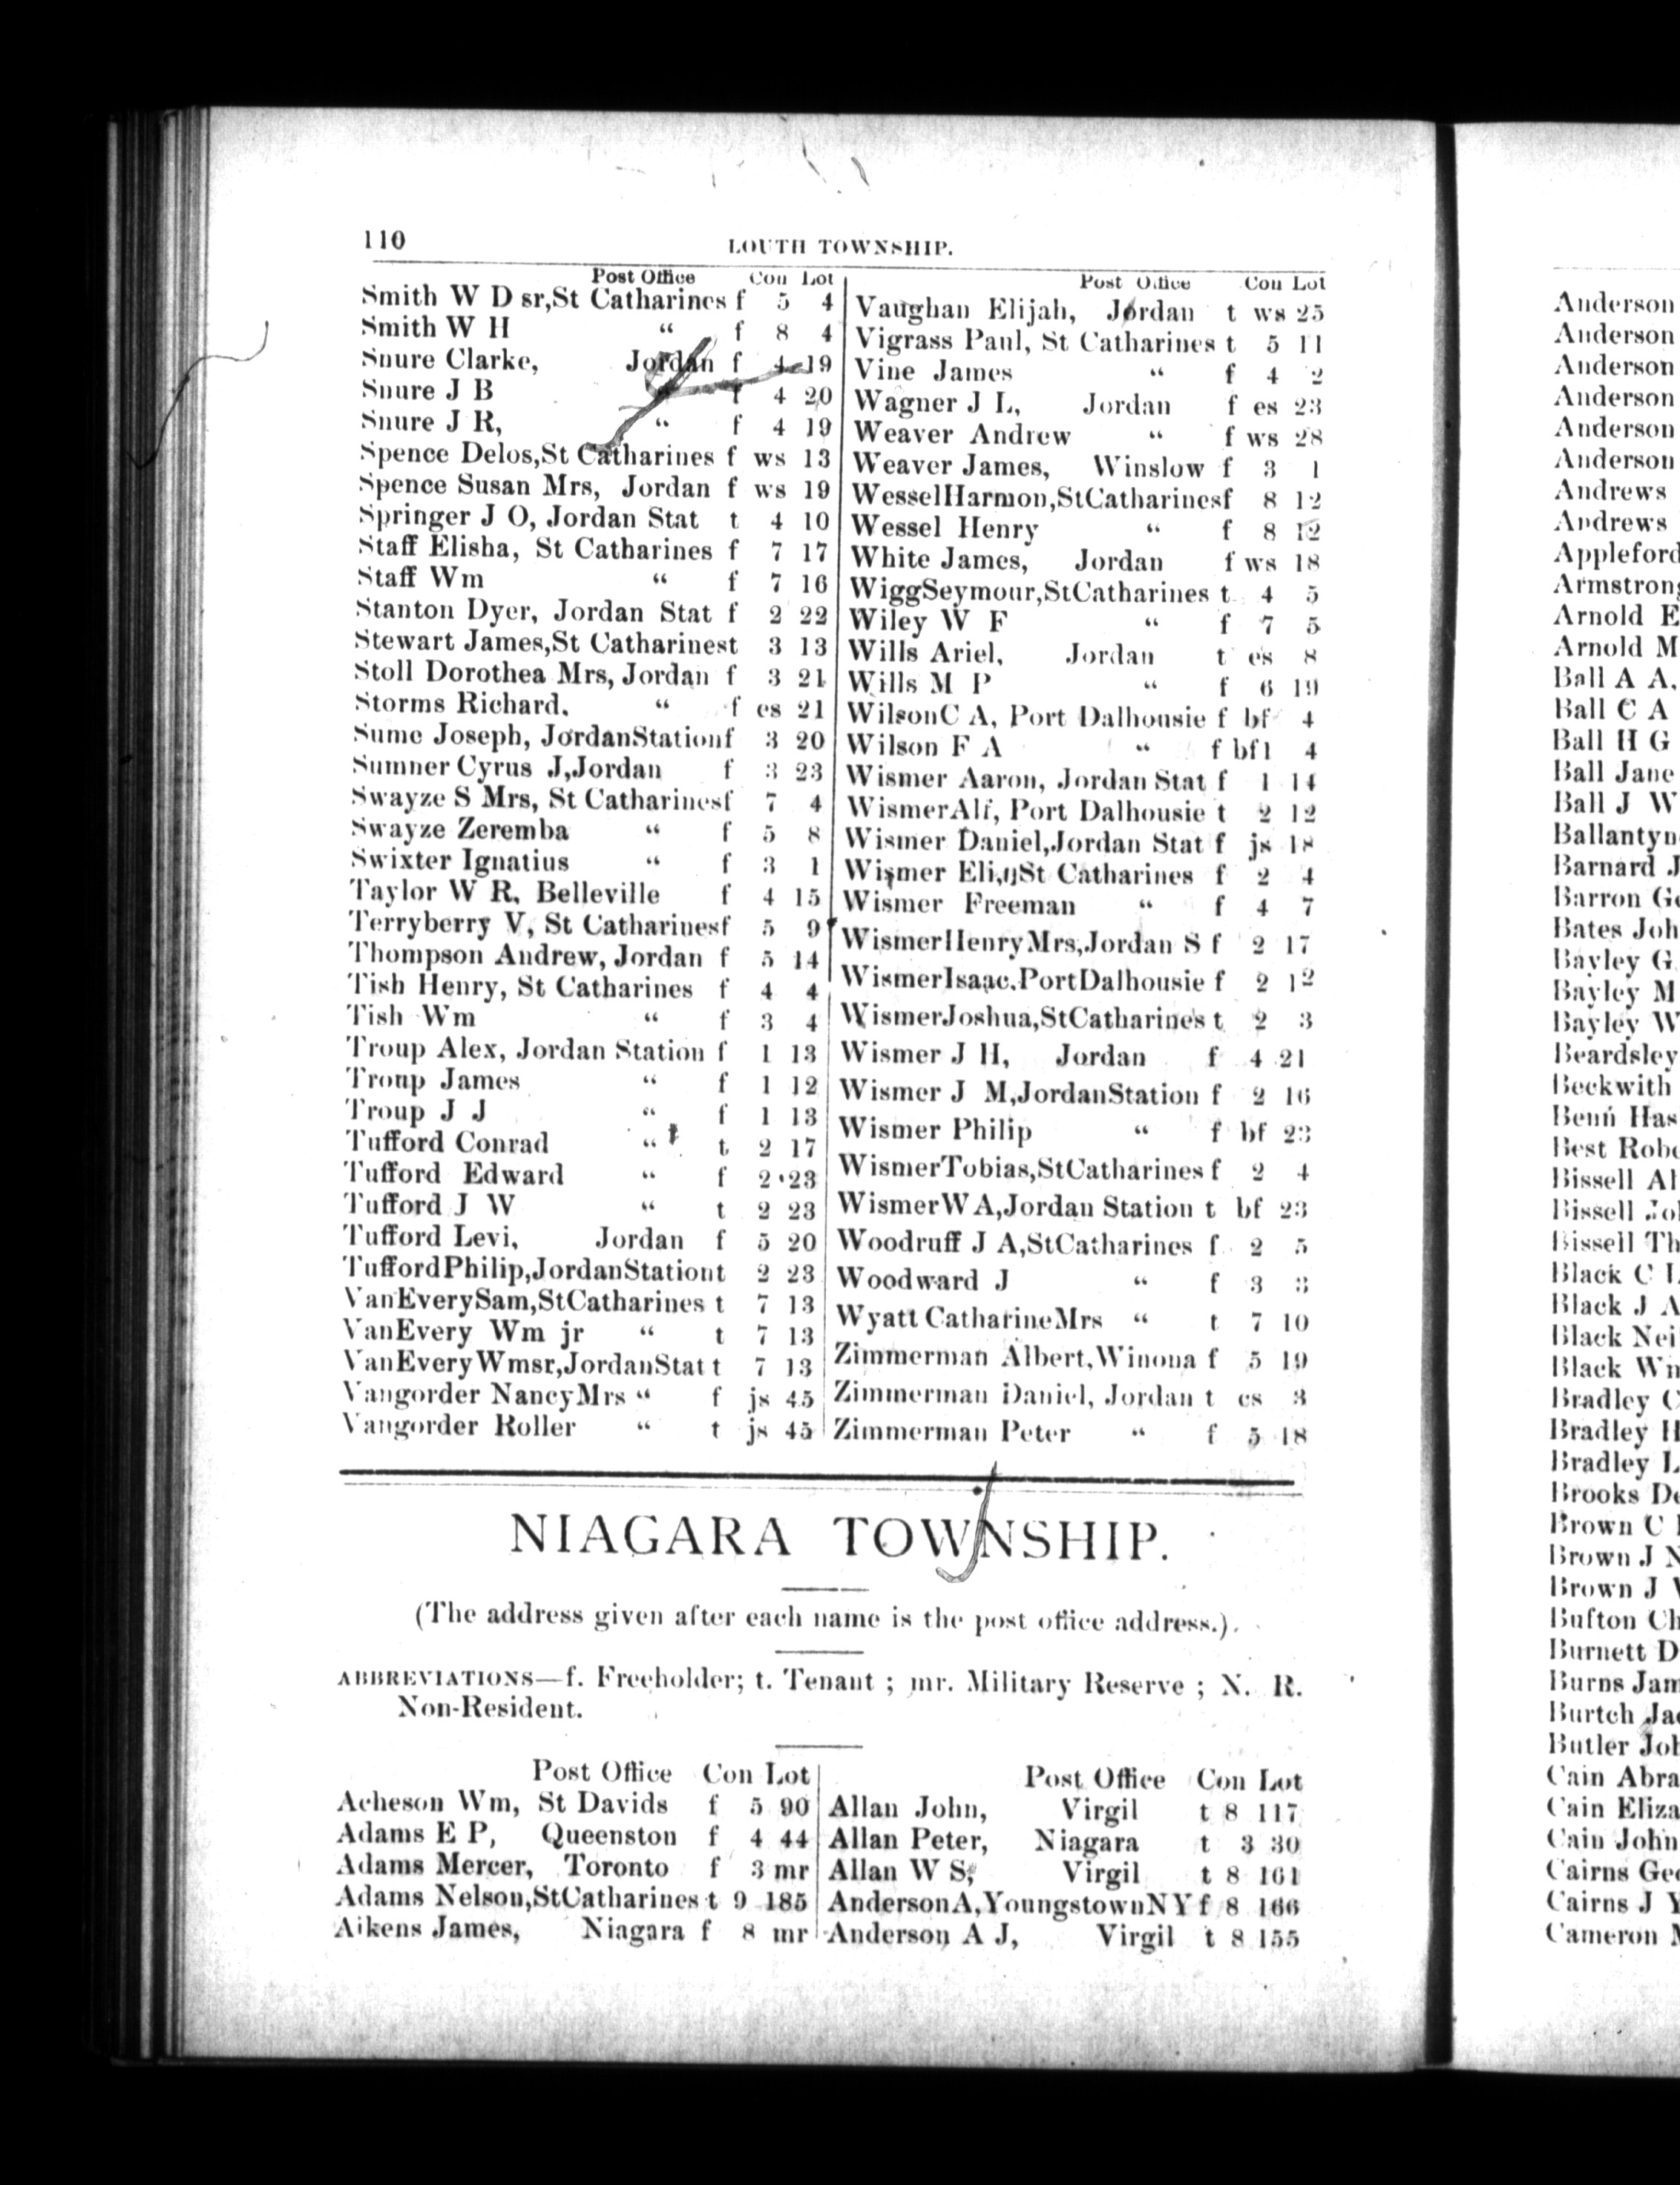 110
LOUTH TOWNSHIP.
Post Office Con Lot
Smith W D sr,St Catharines f 5 4
Smith W H “ f 8 4
Snure Clarke, Jordan f 4 19
Snure J B “ f 4 20
Snure J R, “ f 4 19
Spence Delos,St Catharines f ws 13
Spence Susan Mrs, Jordan f ws 19
Springer J O, Jordan Stat t 4 10
Staff Elisha, St Catharines f 7 17
Staff Wm “ f 7 16
Stanton Dyer, Jordan Stat f 2 22
Stewart James,St Catharinest 3 13
Stoll Dorothea Mrs, Jordan f 3 21
Storms Richard, “ f es 21
Sume Joseph, JordanStationf 3 20
Sumner Cyrus J,Jordan f 3 23
Swayze S Mrs, St Catharinesf 7 4
Swayze Zeremba “ f 5 8
Swixter Ignatius “ f 3 1
Taylor W R, Belleville f 4 15
Terryberry V, St Catharinesf 5 9
Thompson Andrew, Jordan f 5 14
Tish Henry, St Catharines f 4 4
Tish Wm “ f 3 4
Troup Alex, Jordan Station f 1 13
Troup James “ f 1 12
Troup J J “ f 1 13
Tufford Conrad “ t 2 17
Tufford Edward “ f 2 23
Tufford J W “ t 2 23
Tufford Levi, Jordan f 5 20
TuffordPhilip,JordanStationt 2 23
VanEverySam,StCatharines t 7 13
VanEvery Wm jr “ t 7 13
VanEveryWmsr,JordanStat t 7 13
Vangorder NancyMrs “ f js 45
Vangorder Roller “ t js 45
Post Office Con Lot
Vaughan Elijah, Jordan t ws 25
Vigrass Paul, St Catharines t 5 11
Vine James “ f 4 2
Wagner J L, Jordan f es 23
Weaver Andrew “ f ws 28
Weaver James, Winslow f 3 1
WesselHarmon,StCatharinesf 8 12
Wessel Henry “ f 8 12
White James, Jordan f ws 18
WiggSeymour,StCatharines t 4 5
Wiley W F “ f 7 5
Wills Ariel, Jordan t es 8
Wills M P “ f 6 19
WilsonC A, Port Dalhousie f bf 4
Wilson F A “ f bf1 4
Wismer Aaron, Jordan Stat f 1 14
WismerAlf, Port Dalhousie t 2 12
Wismer Daniel,Jordan Stat f js 18
Wismer Eli, St Catharines f 2 4
Wismer Freeman “ f 4 7
WismerHenryMrs,Jordan S f 2 17
WismerIsaac,PortDalhousie f 2 12
WismerJoshua,StCatharines t 2 3
Wismer J H, Jordan f 4 21
Wismer J M,JordanStation f 2 16
Wismer Philip “ f bf 23
WismerTobias,StCatharines f 2 4
WismerWA,Jordan Station t bf 23
Woodruff J A,StCatharines f 2 5
Woodward J “ f 3 3
Wyatt CatharineMrs “ t 7 10
Zimmerman Albert,Winona f 5 19
Zimmerman Daniel, Jordan t es 3
Zimmerman Peter “ f 5 18
NIAGARA TOWNSHIP.
(The address given after each name is the post office address.)
ABBREVIATIONS—f. Freeholder; t. Tenant ; mr. Military Reserve ; N. R.
Non-Resident.
Post Office Con Lot
Acheson Wm, St Davids f 5 90
Adams E P, Queenston f 4 44
Adams Mercer, Toronto f 3 mr
Adams Nelson,StCatharines t 9 185
Aikens James, Niagara f 8 mr
Post Office Con Lot
Allan John, Virgil t 8 117
Allan Peter, Niagara t 3 30
Allan W S, Virgil t 8 161
AndersonA,YoungstownNY f 8 166
Anderson A J, Virgil t 8 155
Anderson
Anderson
Anderson
Anderson
Anderson
Anderson
Andrews
Andrews
Appleford
Armstrong
Arnold E
Arnold M
Ball A A,
Ball C A
Ball H G
Ball Jane
Ball J W
Ballantyn
Barnard J
Barron Ge
Bates Joh
Bayley G
Bayley M
Bayley W
Beardsley
Beckwith
Benn Has
Best Robe
Bissell Al
Bissell Jol
Bissell Th
Black C L
Black J A
Black Nei
Black Wm
Bradley C
Bradley H
Bradley L
Brooks De
Brown C
Brown J N
Brown J
Bufton Ch
Burnett D
Burns Jam
Burtch Ja
Butler Joh
Cain Abra
Cain Eliza
Cain John
Cairns Geo
Cairns J Y
Cameron